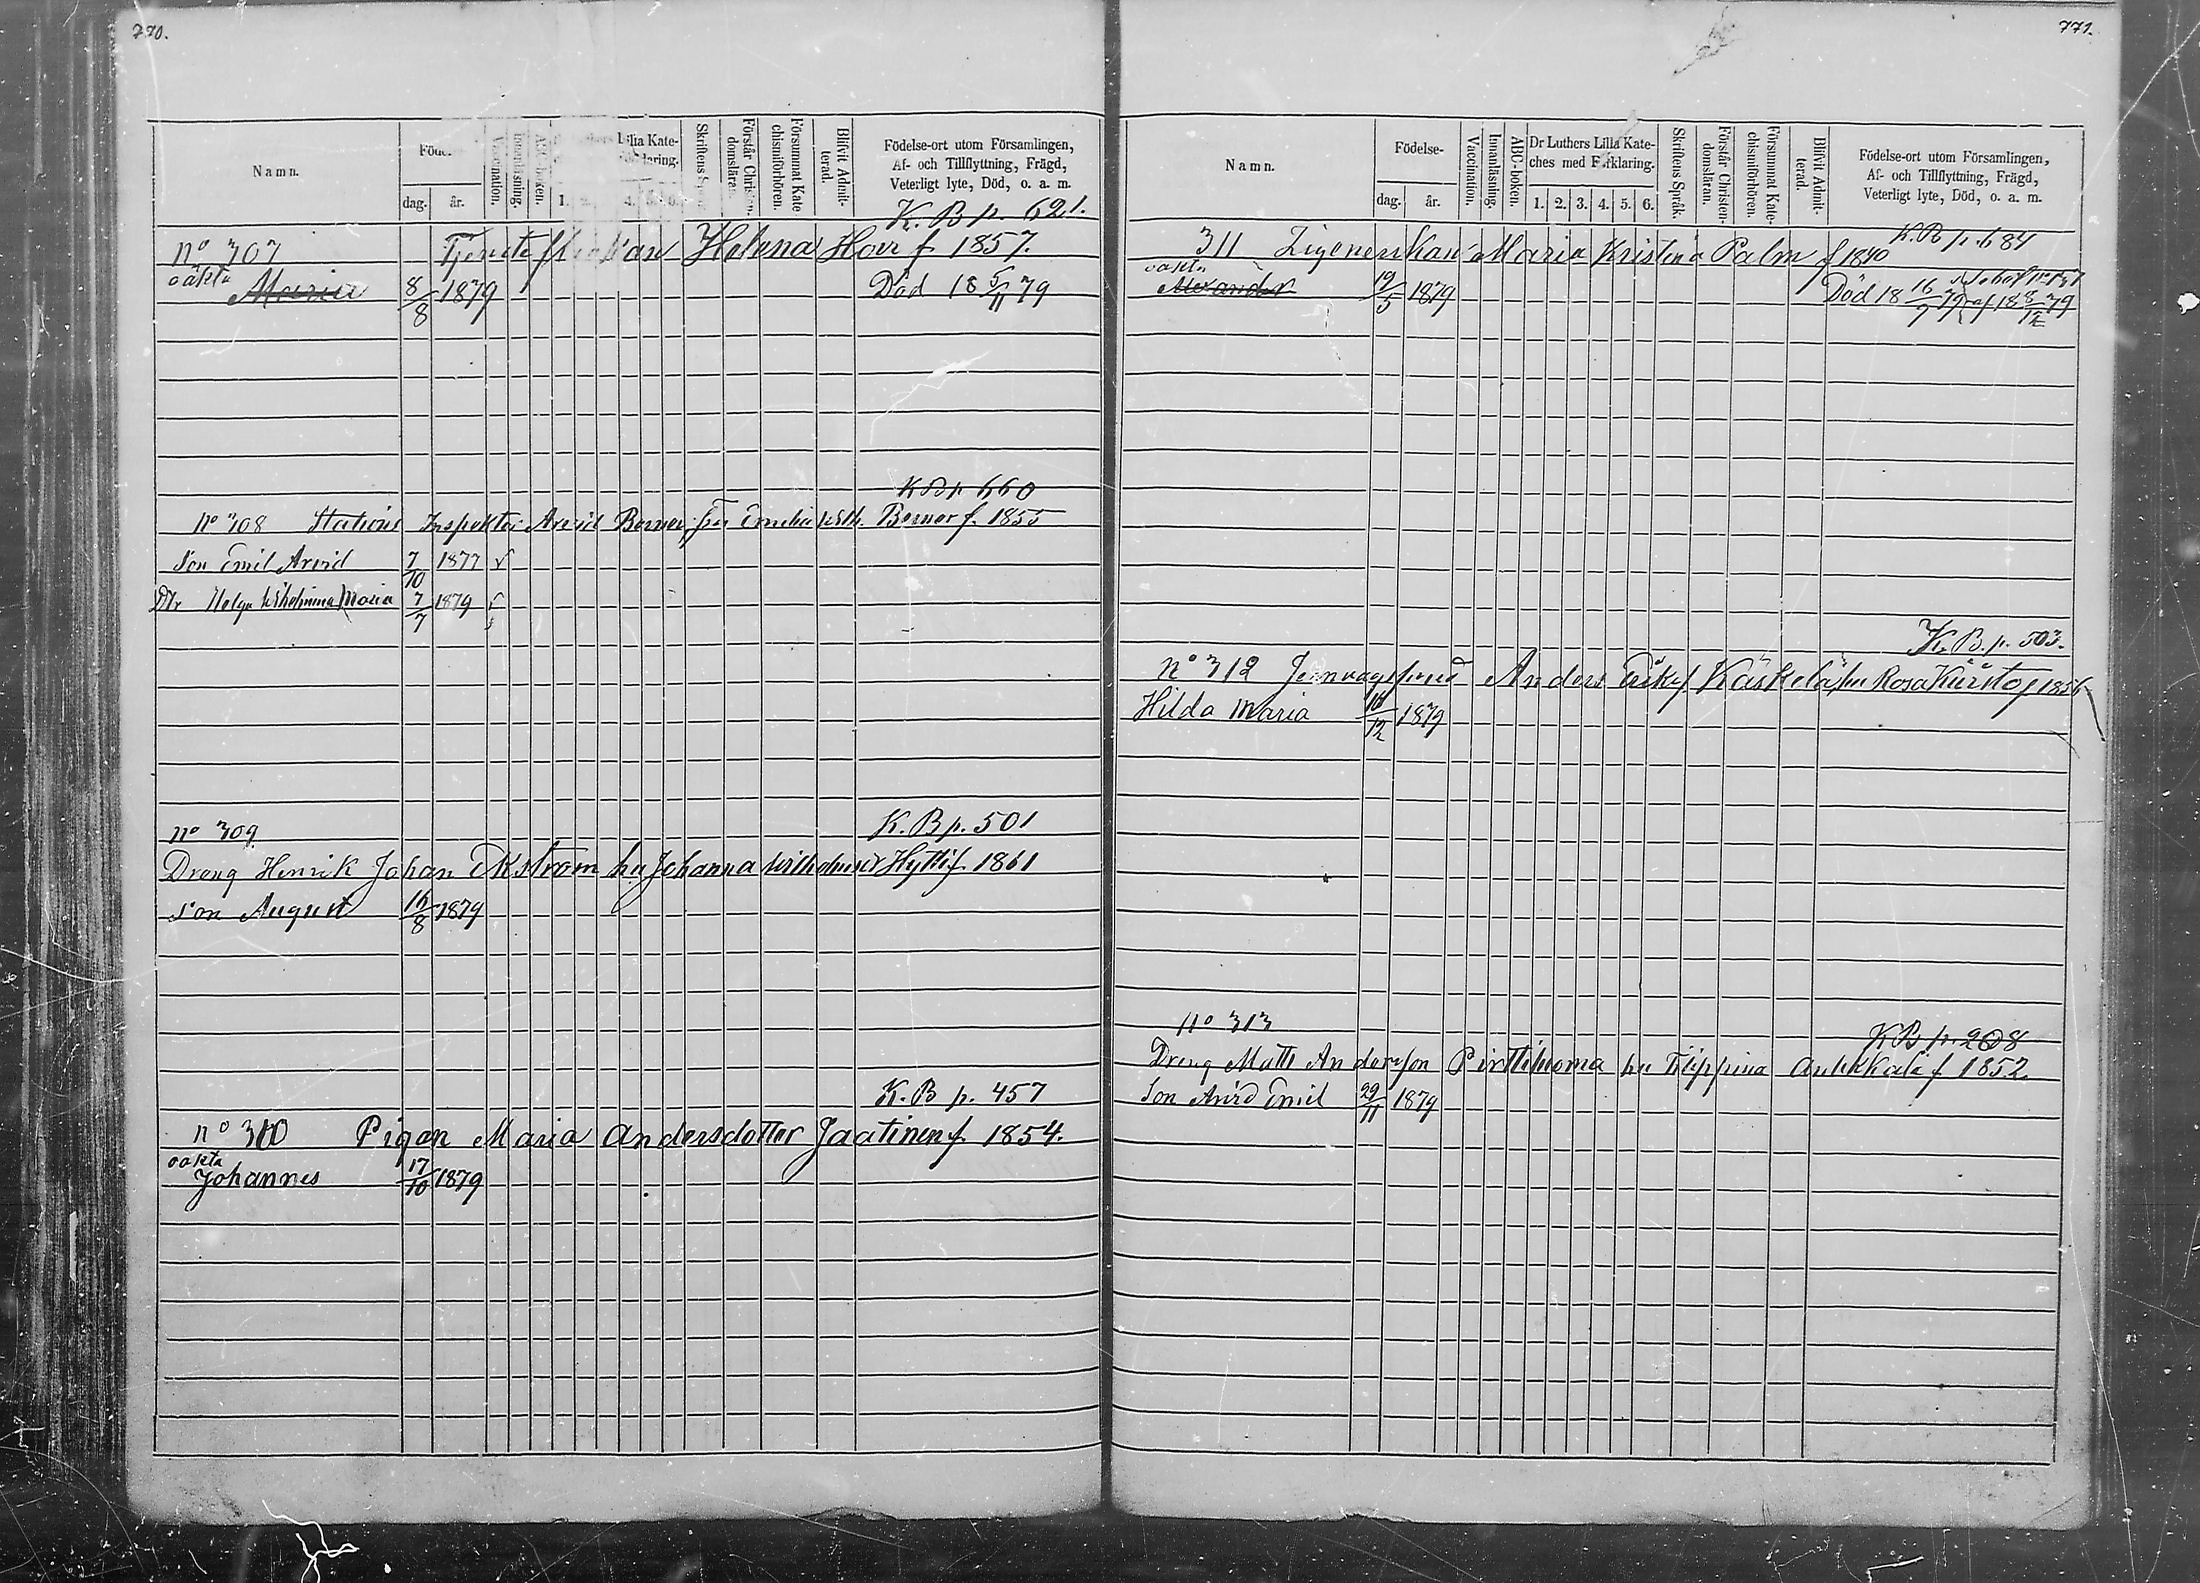 770.
Namn.
Födelse-
dag.
år.
Vaccination.
Innanläsning.
ABC-boken.
Luthers Lilla Kate-
klaring.
1.
4.
5.
6.
Skriftens Språk.
Förstår Christen-
domsläran.
Försummat Kate-
chismiförhören.
Blifvit Admit-
terad.
Födelse-ort utom Församlingen,
Af- och Tillflyttning, Frägd,
Veterligt lyte, Död, o. a. m.
K. B p. 621.
No 307 Helena f 1857.
oäkta Maria 8/8 1879 Död 18 5/11 79
K B p 660
No 308 Stations Inspektor Arvid Berner, hu Emelia Wilh. Berner f. 1855
Son Emil Arvid 7/10 1877 v
Dtr Helga Wilhelmina Maria 7/7 1879 v
No 309. K. B p. 501
Dreng Henrik Johan Ekström hu Johanna Wilhelmina Hytti f. 1861
Son August 16/8 1879
K. B p. 457
No 310 Pigan Maria Andersdotter Jaatinen f. 1854.
oäkta
Johannes 17/10 1879
771.
Namn.
Födelse-
dag.
år.
Vaccination.
Innanläsning.
ABC-boken.
Dr Luthers Lilla Kate-
ches med Förklaring.
1. 2. 3. 4. 5. 6.
Skriftens Språk.
Förstår Christen-
domsläran.
Försummat Kate-
chismiförhören.
Blifvit Admit-
terad.
Födelse-ort utom Församlingen,
Af- och Tillflyttning, Frägd,
Veterligt lyte, Död, o. a. m.
K. B p. 684
311 Zigenerskan Maria Kristina Palm f 1840
oäkta
Alexander 19/5 1879 Död 18 16/7 79
K. B. p. 503.
No 312 Anders Käskelä, hu Rosa f 1856
Hilda Maria 16/12 1879
No 313 K B p. 208
Dreng Matts Andersson Pirttihoma hu Filippina f 1852.
Son Arvid Emil 29/11 1879